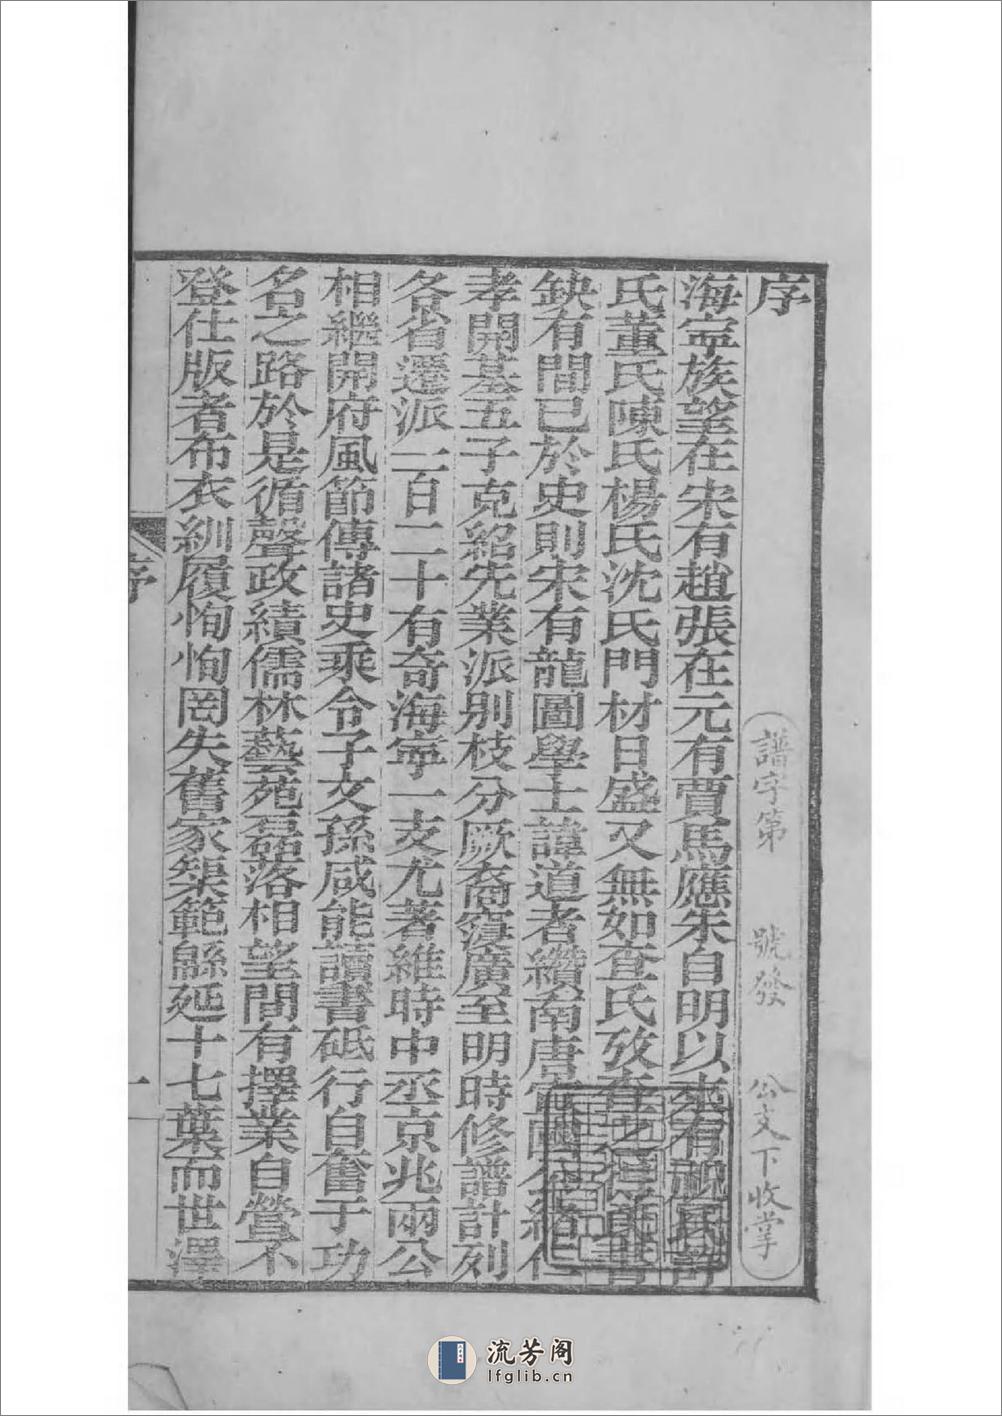 序
譜字第 號發 公文下收掌
海寧族望在宋有趙張在元有賈馬應朱自明以來有祝氏許
氏董氏陳氏楊氏沈氏門材日盛又無如查氏攷查之得氏書
缺有間已於史則宋有龍圖學士諱道者纘南唐宣 公緒仁
孝開基五子克紹先業派別枝分厥裔寖廣至明時修譜計列
各省遷派一百二十有奇海寧一支尤著維時中丞京兆兩公
相繼開府風節傳諸史乘令子文孫咸能讀書砥行自奮于功
名之路於是循聲政績儒林藝苑磊落相望間有擇業自營不
登仕版者布衣紃履恂恂罔失舊家榘範緜延十七葉而世澤
序
一
流芳阁
lfglib.cn